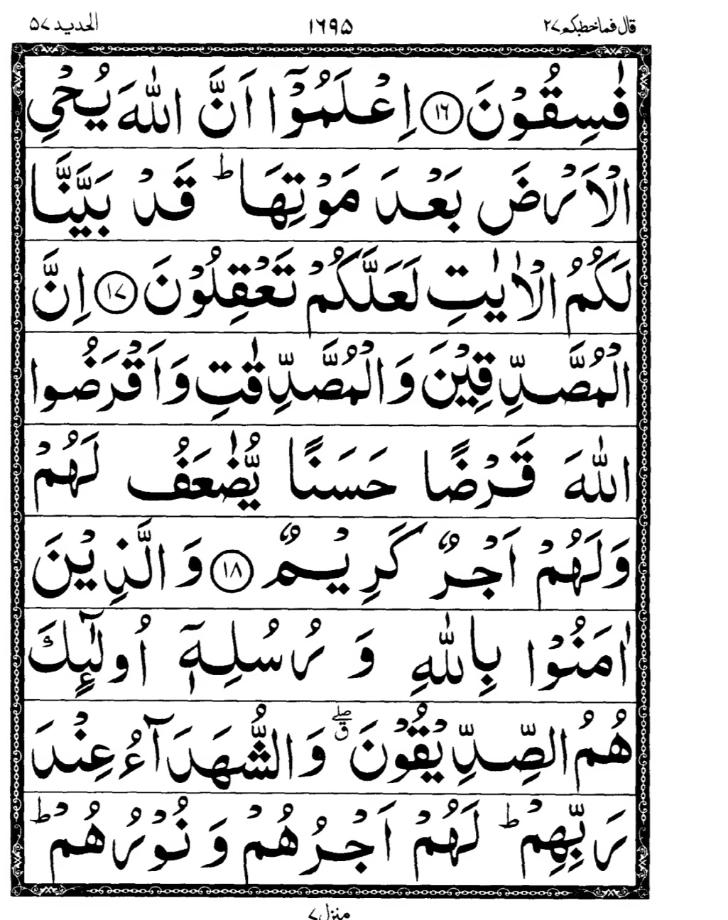 قال فماخطبكم ٢٧ ١٦٩٥ الحديد ٥٧
فٰسِقُوۡنَ ﴿۱۶﴾ اِعۡلَمُوۡۤا اَنَّ اللّٰهَ یُحۡیِ
الۡاَرۡضَ بَعۡدَ مَوۡتِهَا ؕ قَدۡ بَیَّنَّا
لَكُمُ الۡاٰیٰتِ لَعَلَّكُمۡ تَعۡقِلُوۡنَ ﴿۱۷﴾ اِنَّ
الۡمُصَّدِّقِیۡنَ وَالۡمُصَّدِّقٰتِ وَاَقۡرَضُوا
اللّٰهَ قَرۡضًا حَسَنًا یُّضٰعَفُ لَهُمۡ
وَلَهُمۡ اَجۡرٌ كَرِیۡمٌ ﴿۱۸﴾ وَالَّذِیۡنَ
اٰمَنُوۡا بِاللّٰهِ وَ رُسُلِهٖۤ اُولٰٓئِكَ
هُمُ الصِّدِّیۡقُوۡنَ ۖق وَالشُّهَدَآءُ عِنۡدَ
رَبِّهِمۡ ؕ لَهُمۡ اَجۡرُهُمۡ وَ نُوۡرُهُمۡ ؕ
منزل ٧